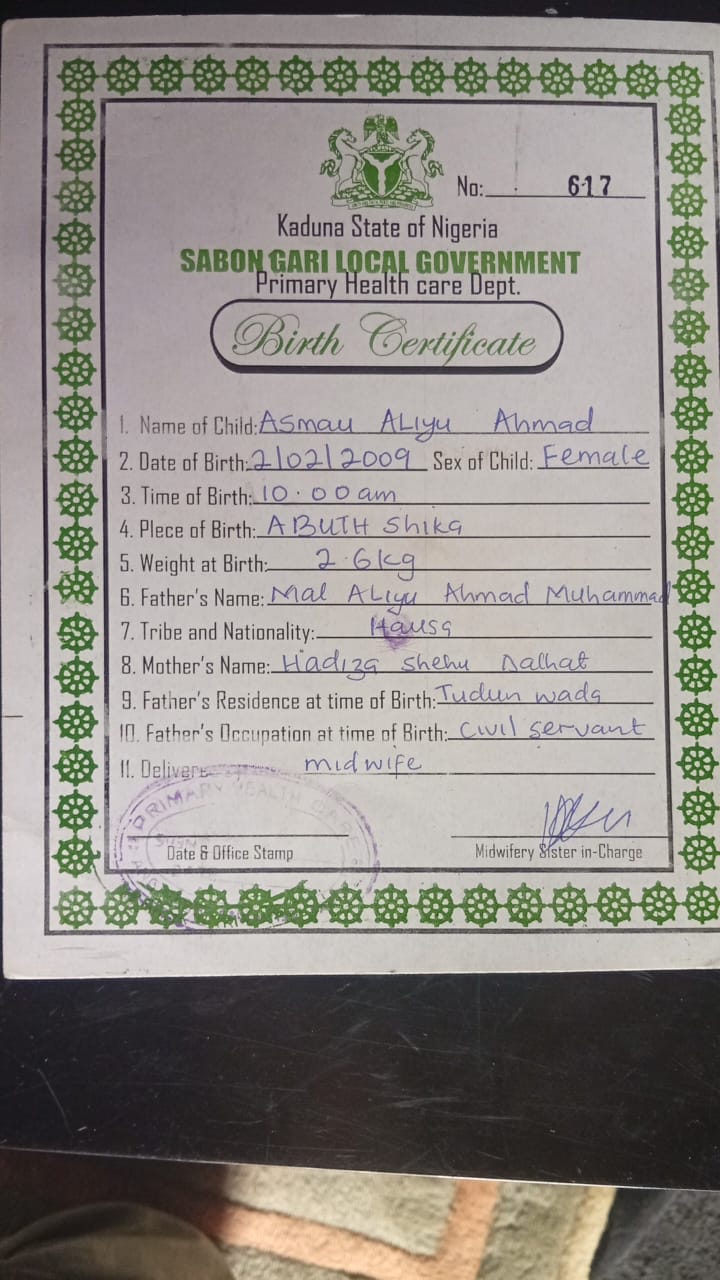 No: 617
Kaduna State of Nigeria
SABON GARI LOCAL GOVERNMENT
Primary Health care Dept.
Birth Certificate
1. Name of Child: Asmau Aliyu Ahmad
2. Date of Birth: 2/02/2009 Sex of Child: Female
3. Time of Birth: 10.00am
4. Plece of Birth: ABUTH Shika
5. Weight at Birth: 2.6kg
6. Father's Name: Mal Aliyu Ahmad Muhammad
7. Tribe and Nationality: Hausa
8. Mother's Name: Hadiza Shehu Dalhat
9. Father's Residence at time of Birth: Tudun wada
10. Father's Occupation at time of Birth: Civil servant
11. midwife
PRIMARY HEALTH CARE
Date & Office Stamp
Midwifery Sister in-Charge